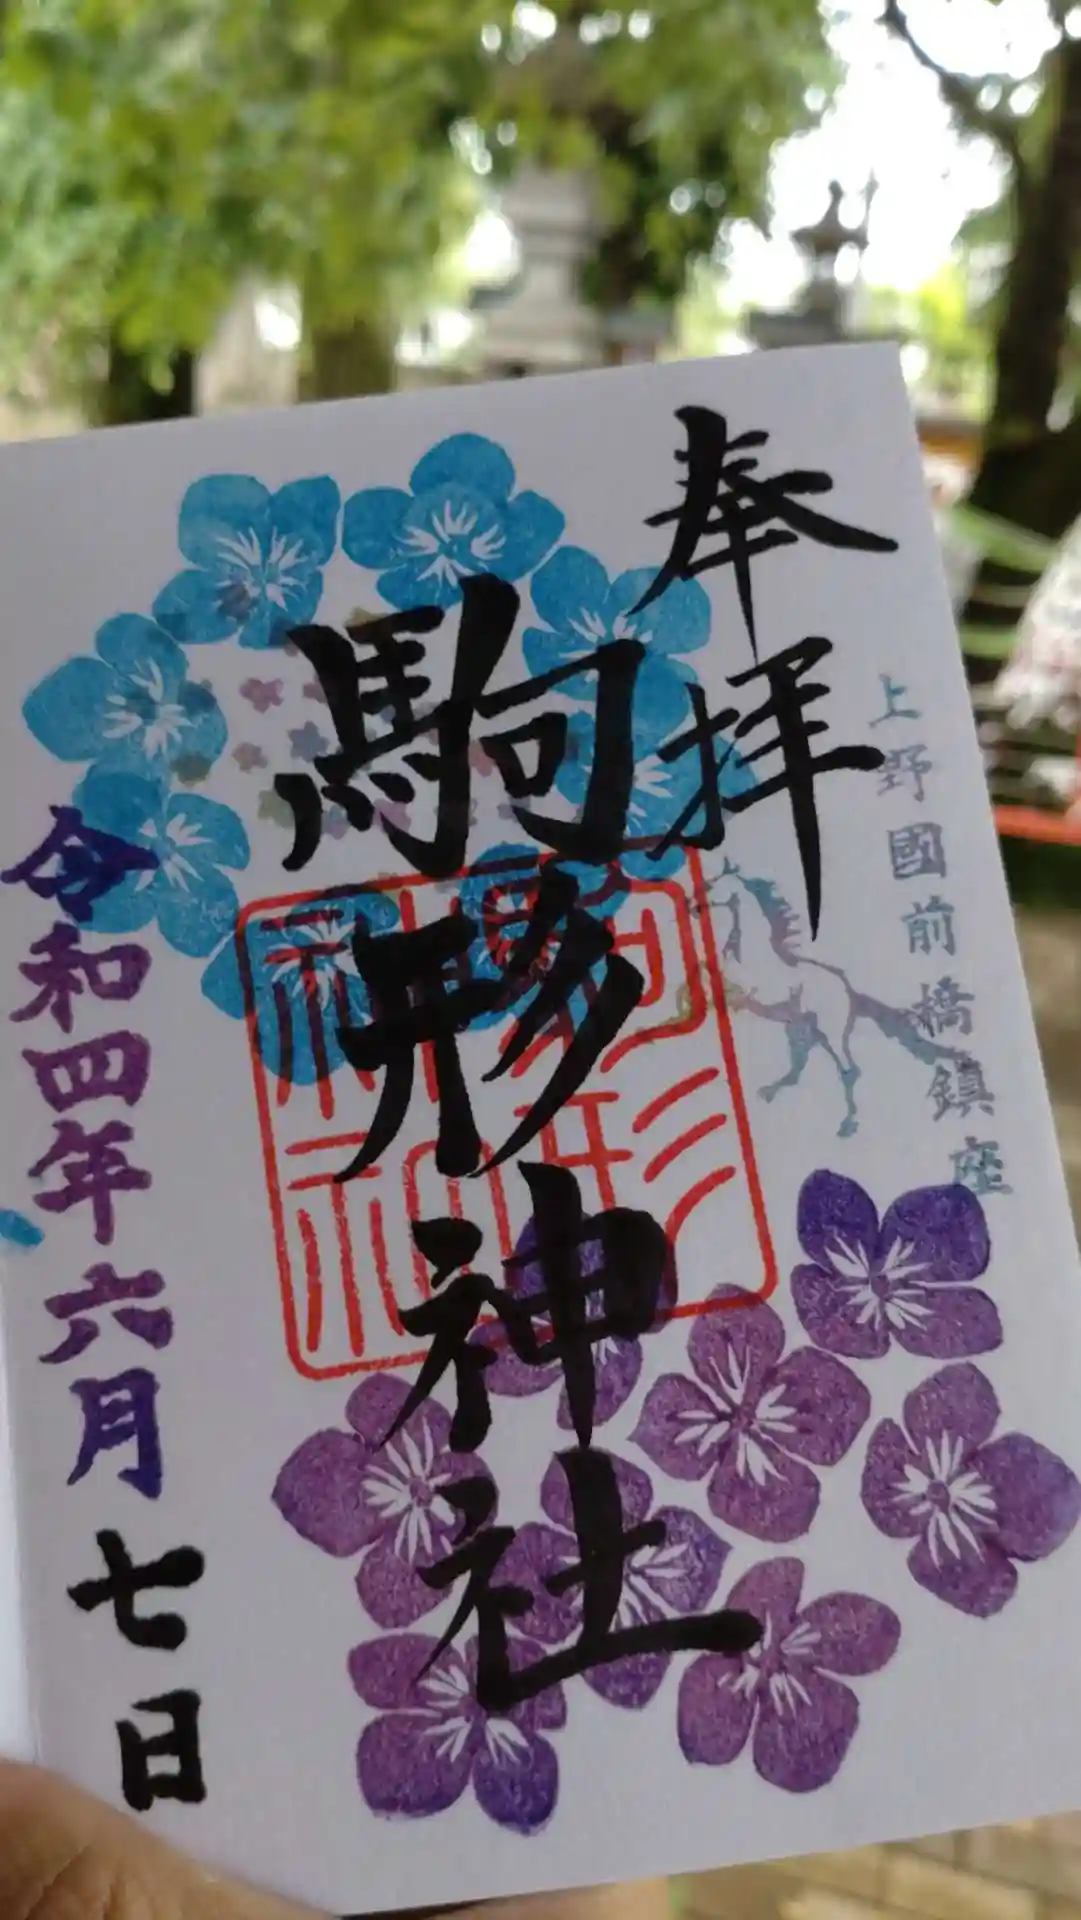 奉拝
上野國前橋鎮座
駒形神社
駒形神社
令和四年六月七日